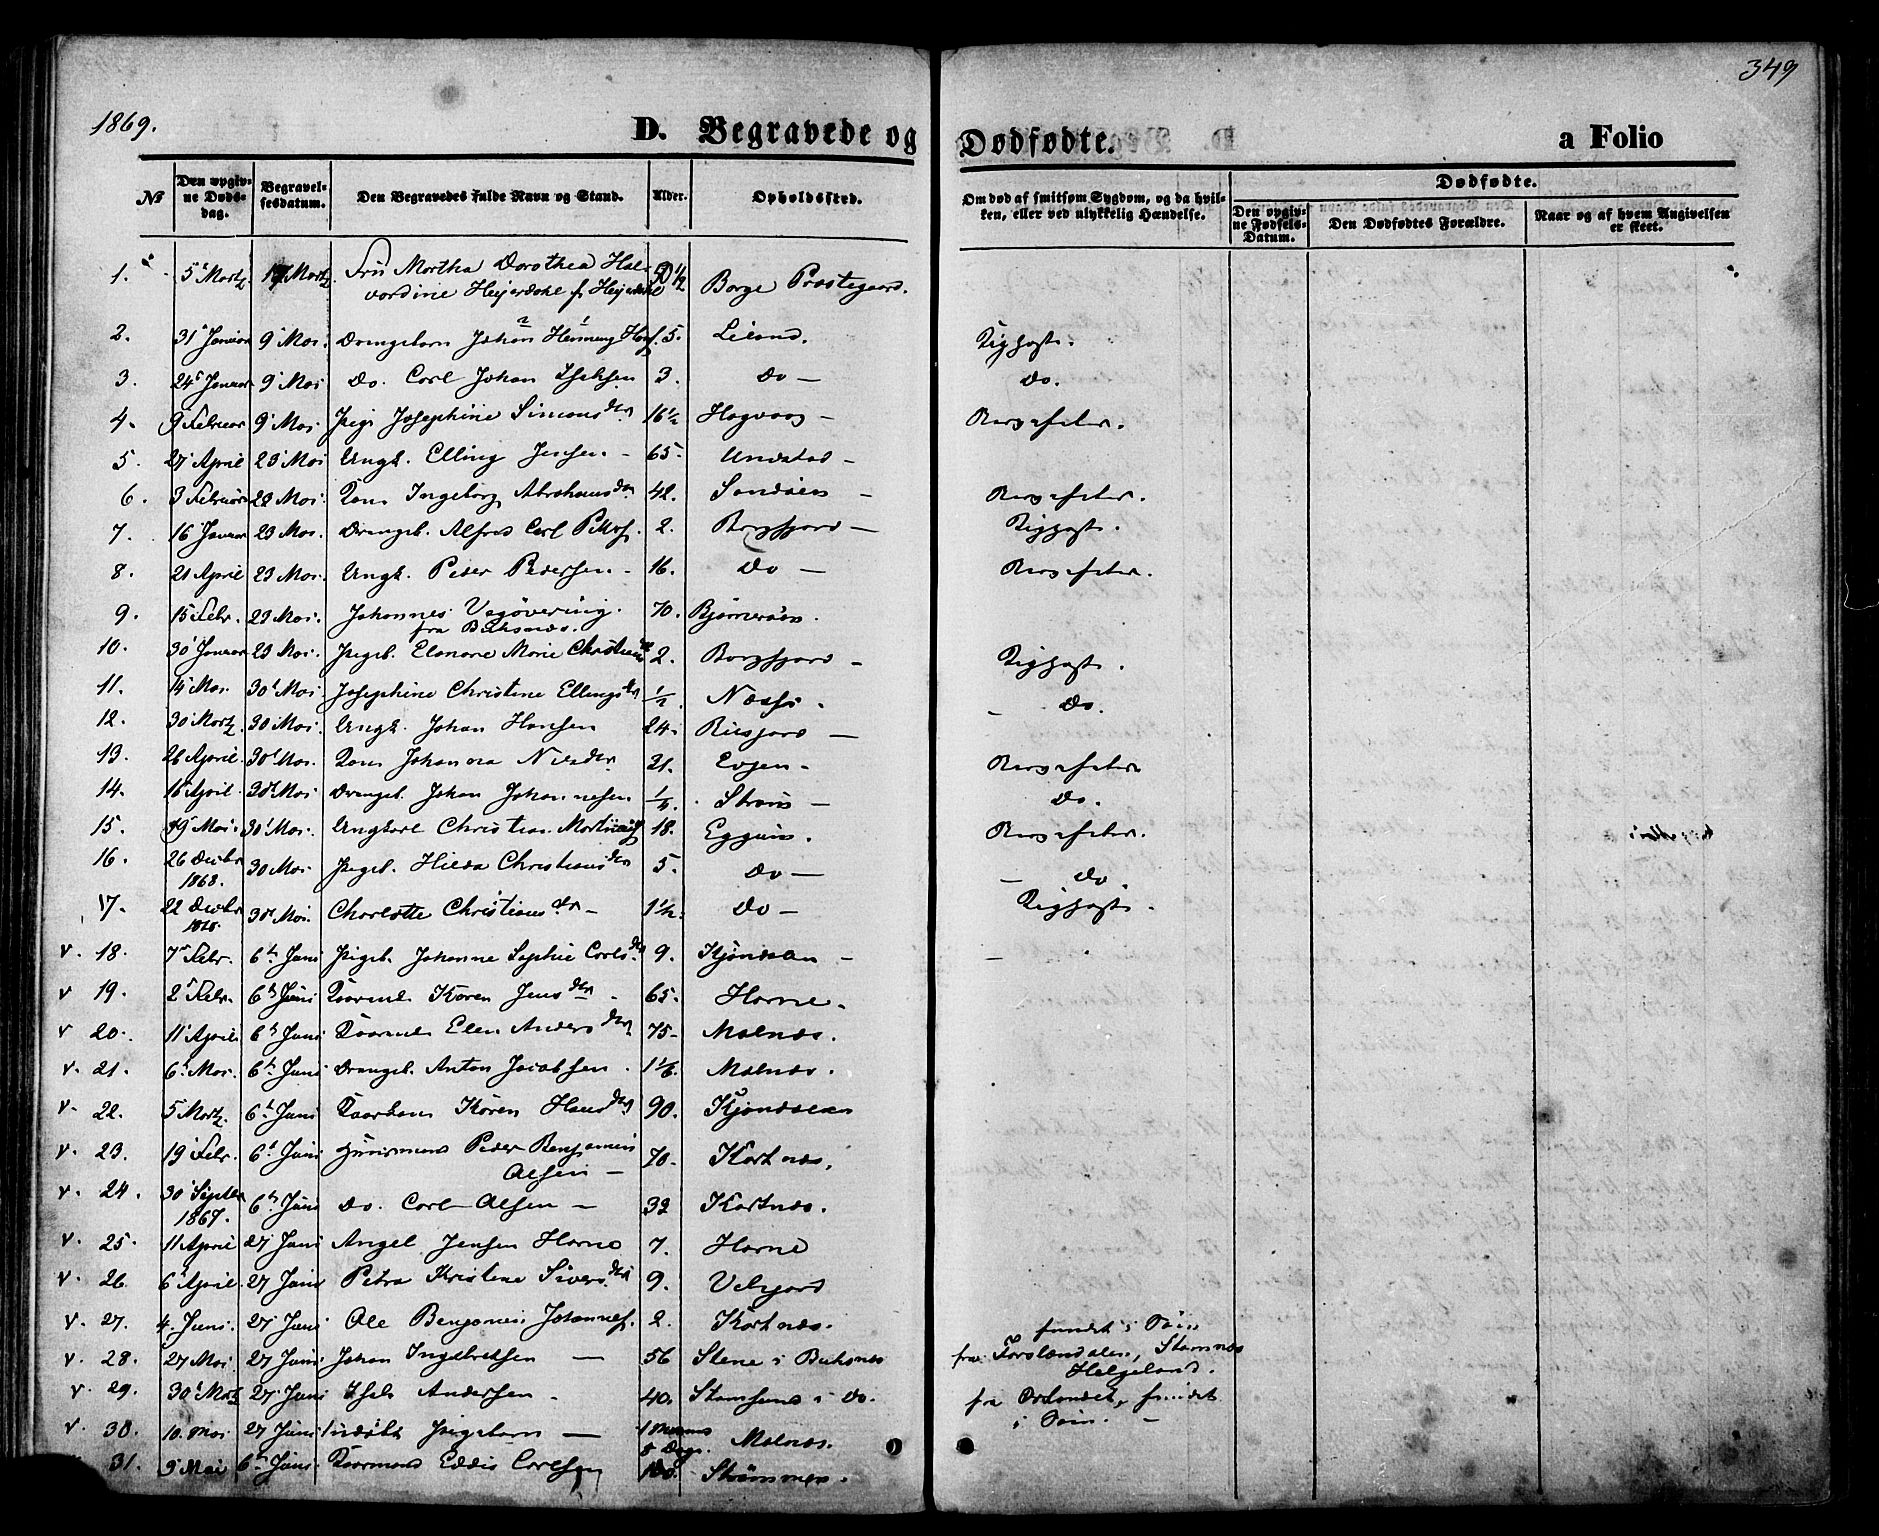 349
1869.
D. Begravede og Dødfødte.
a Folio
№
Den opgivne Dødsdag.
Begravelsesdatum.
Den Begravedes fulde Navn og Stand.
Alder.
Opholdssted.
Om død af smitsom Sygdom, og da hvilken, eller ved ulykkelig Hændelse.
Dødfødte.
Den opgivne Fødsels-Datum.
Den Dødfødtes Forældre.
Naar og af hvem Angivelsen er skeet.
1. 5 Martz 17 Martz Fru Martha Dorothea Halvardine Heyerdahl f. Heyerdahl 50 1/2 Borge Præstegaard.
2. 31 Januar 9 Mai Drengebarn Johan Henning Hansf. 5. Leland.
3. 24 Januar 9 Mai Do. Carl Johan 3. Do — Do.
4. 9 Februar 9 Mai Pige Josephine Simonsdtr 16 1/2 Hagvaag —
5. 27 April 23 Mai Ungk. Elling Jensen — 65. Unstad —
6. 3 Februar 23 Mai Kone Ingeborg Abrahamsdtr 42. Sandøen —
7. 16 Januar 23 Mai. Drengeb. Alfred Carl 2. Borgfjord —
8. 21 April 23 Mai. Ungk. Peder Pedersen — 16. Do —
9. 15 Febr. 23 Mai. Johannes Vegøværing. fra Buksnæs. 70. Bjørnerøen.
10. 30 Januar 23 Mai. Pigeb. Elenore Marie Christiansdtr 2. Borgfjord —
11. 14 Mai. 30 Mai. Josephine Christine Ellingsdtr 1/2 Næsse. — Do.
12. 30 Martz. 30 Mai. Ungk. Johan Hansen 24. Risfjord —
13. 26 April. 30 Mai. Kone Johanna 21. Evjen —
14. 16 April. 30 Mai Drengeb. Johan Johannesen Do.
15. 19 Mai. 30 Mai. Ungkarl Christian 18. Eggum.
16. 26 Decbr 1868. 30 Mai Pigeb. Hilda Christiansdtr 5. Do — — Do.
17. 22 Decbr 1868. 30 Mai. Charlotte Christiansdtr — 1 1/2. Do —
v. 18. 7 Febr. 6te Juni Pigeb. Johanne Sophie Carlsdtr 9. — —
v 19. 2 Febr. 6te Juni Karen Jensdtr — 65. Horne —
v 20. 11 April 6te Juni Elen Andersdtr 75 — Malnæs.
v. 21. 6 Mai. 6te Juni Drengeb. Anton Jacobsen. 1 1/6. Malnæs.
v 22. 5 Martz. 6te Juni Karen Hansdtr 90.
v. 23. 19 Febr. 6te Juni Huusmand Peder Benjamin Olsen — 70. Kartnæs.
v. 24. 30 Septbr 1867. 6te Juni Do. Carl Olsen — 32 Kartnæs.
v. 25. 11 April 27 Juni Angel Jensen Horne 7. Horne
v. 26. 6 April. 27 Juni Petra Kristene Siversdtr 9.
v. 27. 4. Juni. 27 Juni Ole Benjamin Johannesf. 2. Kartnæs.
v. 28. 27 Mai 27 Juni Johan Ingebretsen — 56 Stene i Buksnæs fundet i Søen fra Forslandalen, Stamnæs Helgeland.
v. 29. 30 Martz 27 Juni Andersen — 40. Stamsund i Do. fra Ørlandet, fundet i Søen. —
v. 30. 10. Mai 27 Juni udøbt Pigebarn — 1 Maaned 8 Dage. Malnæs.
31. 9 Mai 6te Juni Carlsen Strømmen.